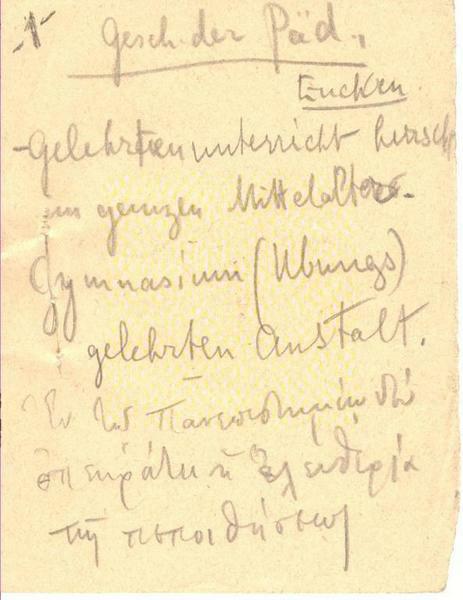 -1-
Gesch. der Päd.,
Eucken
- Gelehrtenunterricht herrscht
im ganzen Mittelalter.
Gymnasium (Übungs)
gelehrten Anstalt.
Ἐν τῷ Πανεπιστημίῳ
ἐπεκράτει ἡ ἐλευθερία
τῆς πεποιθήσεως